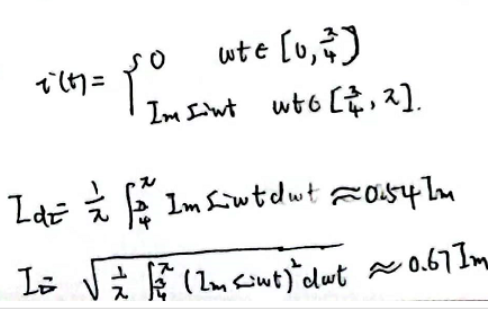 i(t) = { 0    wt ∈ [0, π/4)
Im sinwt    wt ∈ [π/4, π].
Idz = 1/π ∫_{π/4}^{π} Im sinwt dwt ≈ 0.54 Im
I = √(1/π ∫_{π/4}^{π} (Im sinwt)² dwt) ≈ 0.67 Im